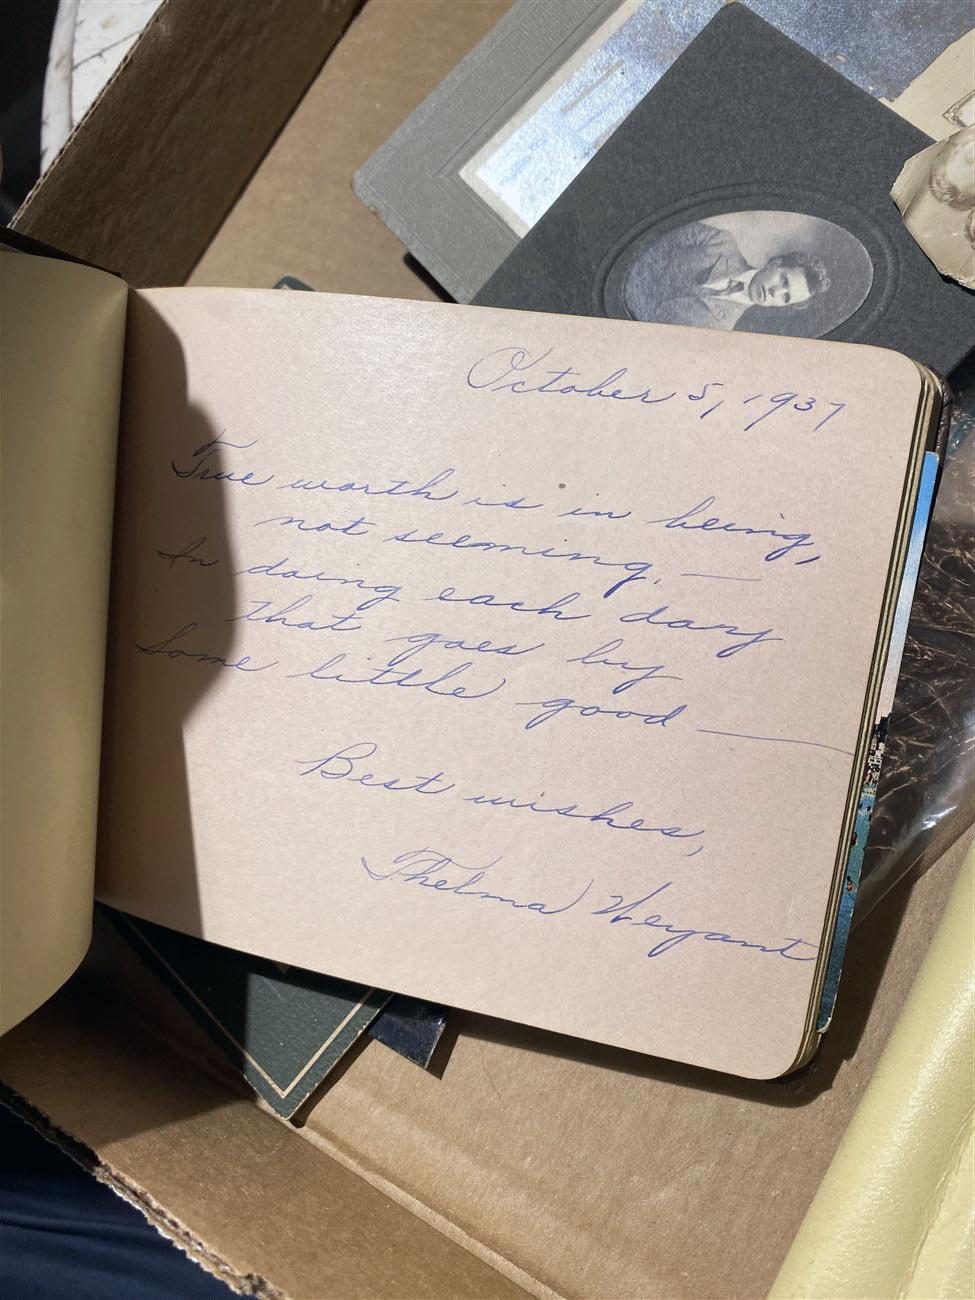 October 5, 1937
True worth is in being,
not seeming. —
In doing each day
that goes by
Some little good —
Best wishes,
Thelma Weyant